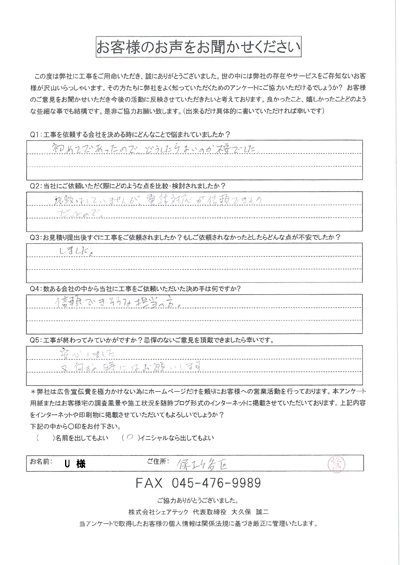 お客様のお声をお聞かせください
この度は弊社に工事をご用命いただき、誠にありがとうございました。世の中には弊社の存在やサービスをご存知ないお客
様が沢山いらっしゃいます。その方たちに弊社をよく知っていただくためのアンケートにご協力いただけるでしょうか？ お客様
のご意見をお聞かせいただき今後の活動に反映させていただきたいと考えております、良かったこと、嬉しかったことどのよう
な些細な事でも結構です。是非ご協力お願い致します。（出来るだけ具体的に書いていただければ幸いです）
Q1：工事を依頼する会社を決める時にどんなことで悩まれていましたか？
初めてであったので、どうしたらよいのか
でした
Q2：当社にご依頼いただく際にどのような点を比較・検討されましたか？
比較はしていませんが、電話対応が信頼できるもの
だったので。
Q3：お見積り提出後すぐに工事をご依頼されましたか？もしご依頼されなかったとしたらどんな点が不安でしたか？
しました。
Q4：数ある会社の中から当社に工事をご依頼いただいた決め手は何ですか？
信頼できそうな担当の方。
Q5：工事が終わってみていかがですか？忌憚のないご意見を頂戴できましたら幸いです。
安心しました
時にはお願いします
＊弊社は広告宣伝費を極力かけない為にホームページだけを頼りにお客様への営業活動を行っております。本アンケート
用紙またはお客様宅の調査風景や施工状況を随時ブログ形式のインターネットに掲載させていただいております。上記内容
をインターネットや印刷物に掲載させていただいてもよろしいでしょうか？
下記の中から〇印をお付け下さい。
（　）名前を出してもよい　（〇）イニシャルなら出してもよい
お名前： U 様　ご住所： 保土ヶ谷区
FAX 045-476-9989
ご協力ありがとうございました。
株式会社シェアテック 代表取締役 大久保 誠二
当アンケートで取得したお客様の個人情報は関係法規に基づき厳正に管理いたします。